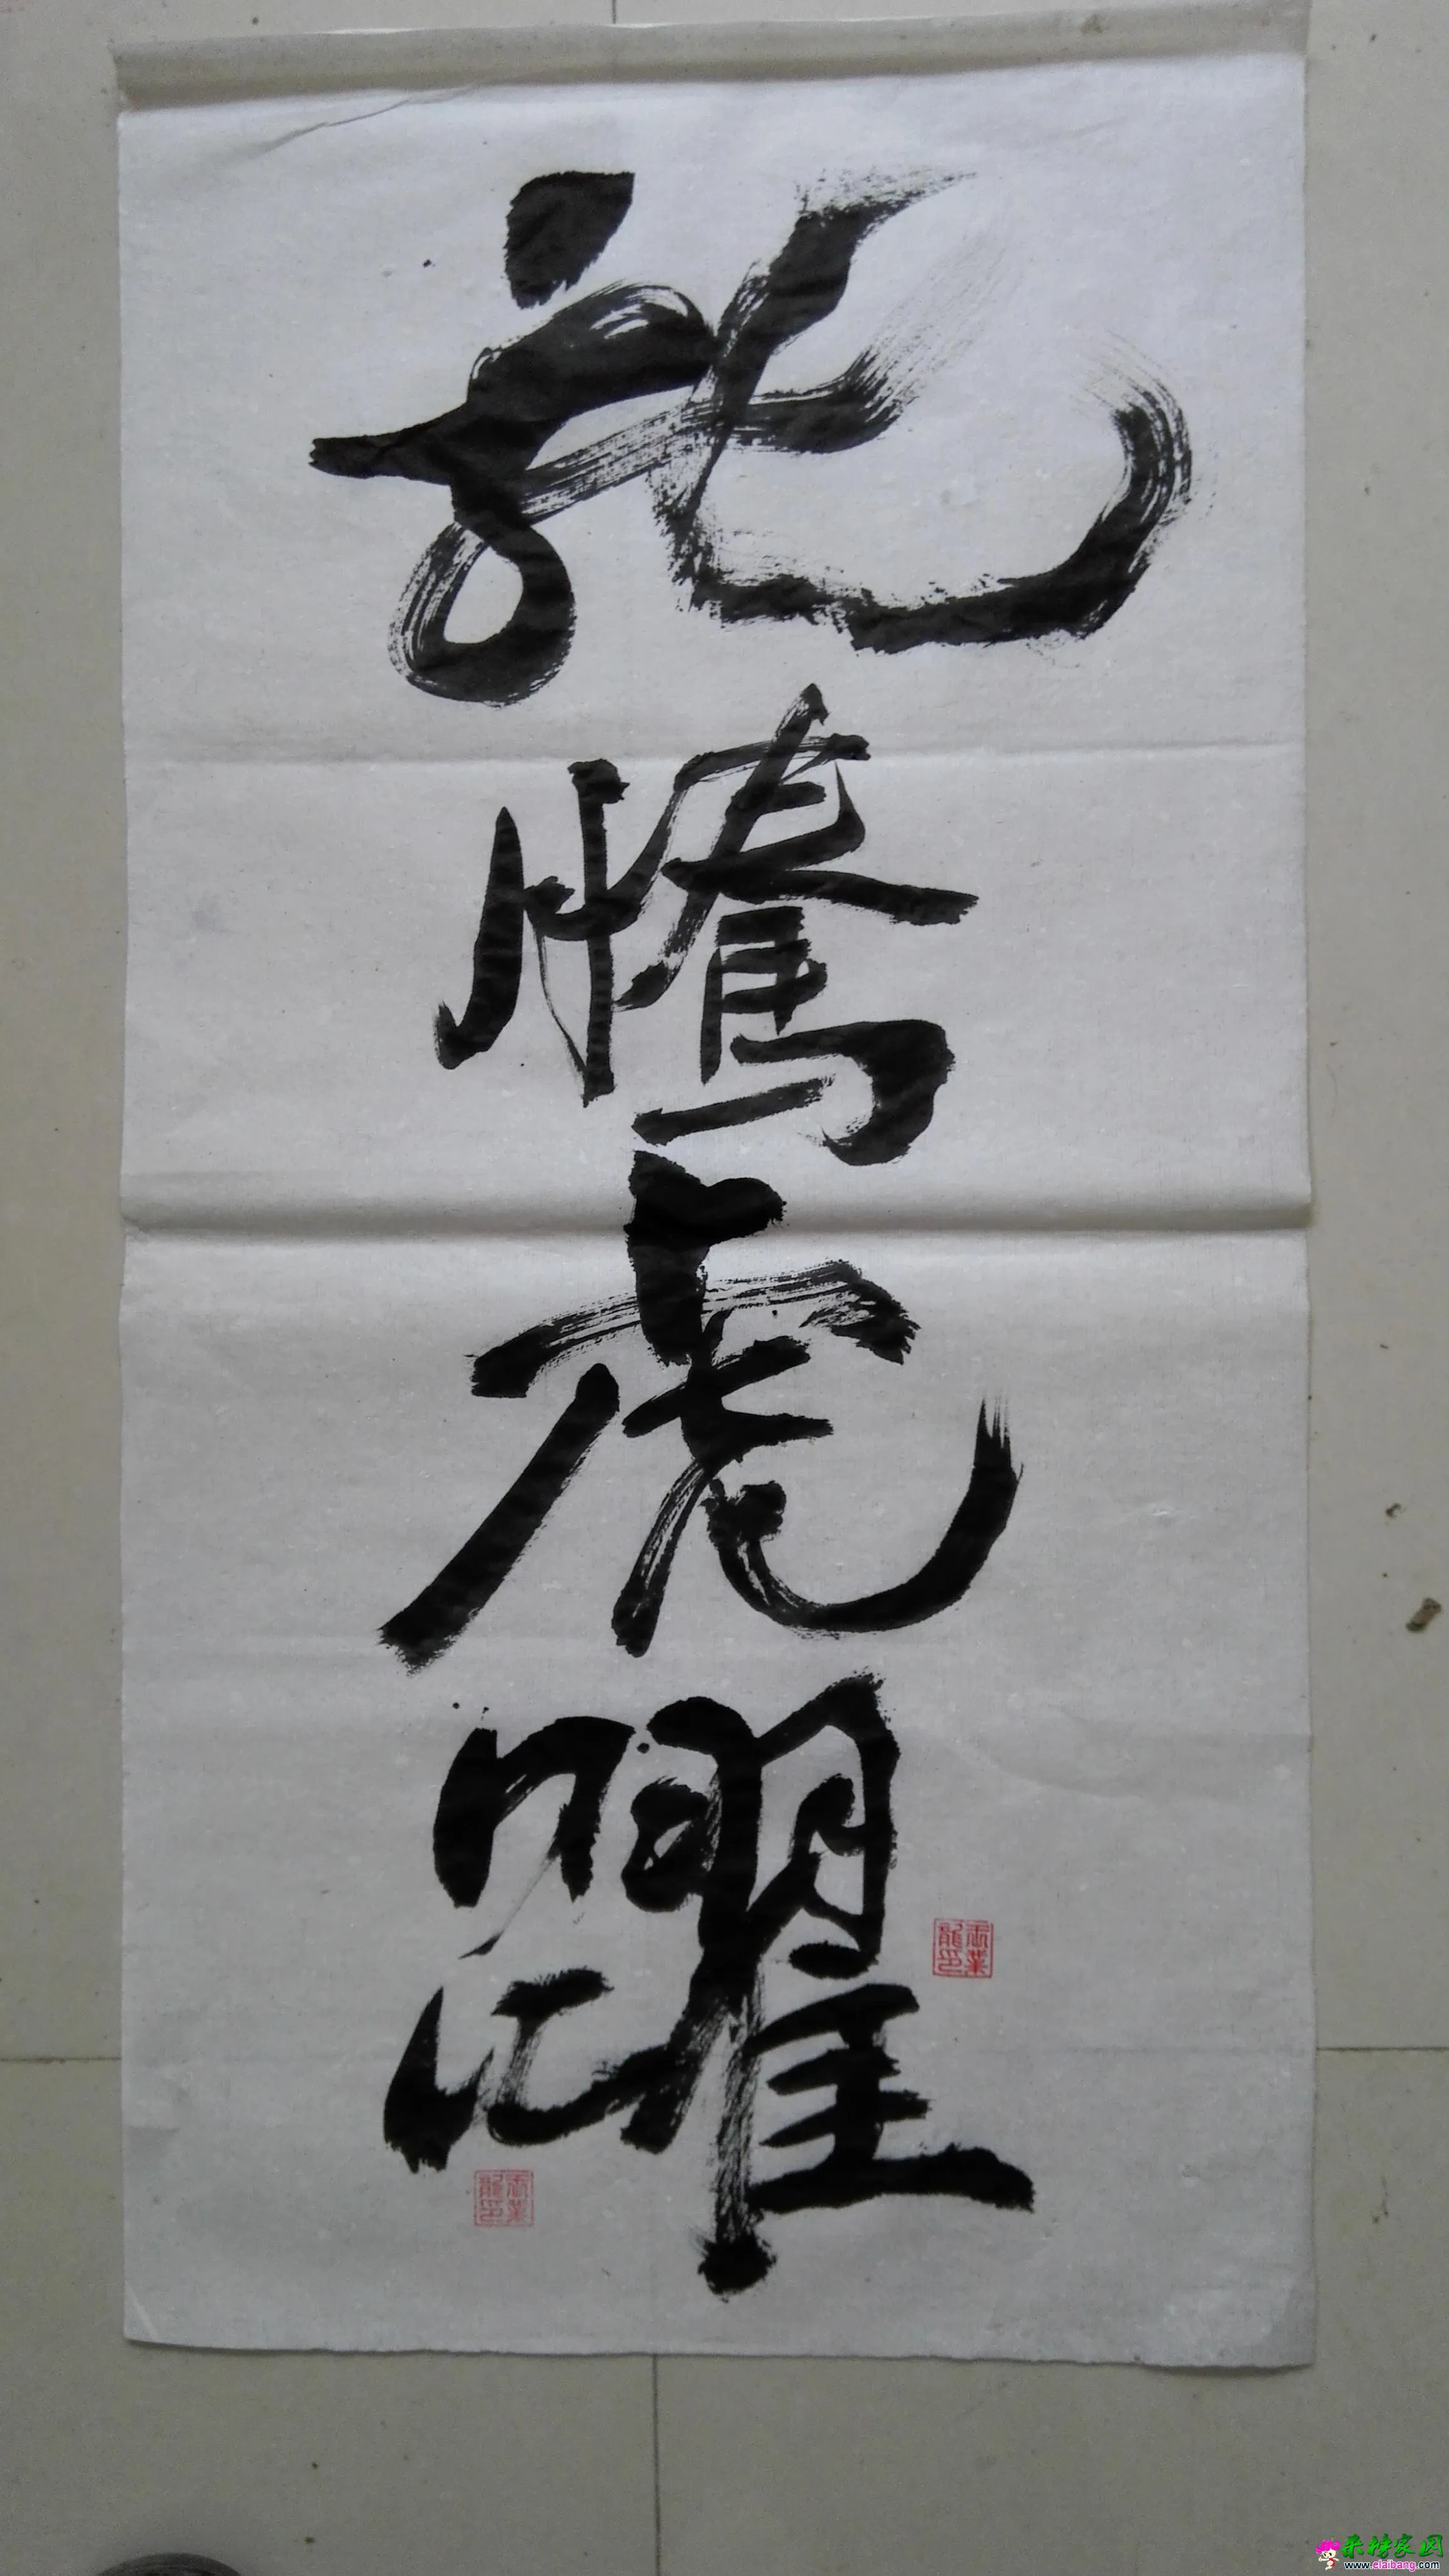 龍騰虎躍
来榜家园
www.elaibang.com